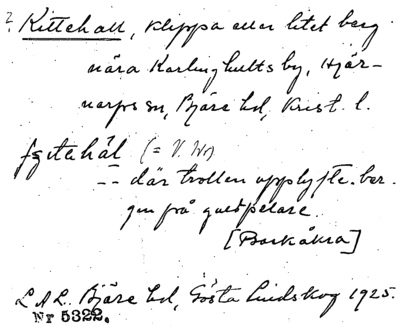 ? Kittehall, klippa eller litet berg
nära Karlinghults by, Hjär-
narps sn, Bjäre hd, Krist. l.
(= V. W)
-- där trollen upplyfte ber-
gen på guldpelare.
[Barkåkra]
L A L. Bjäre hd, Gösta Lindskog 1925.
Nr 5322.